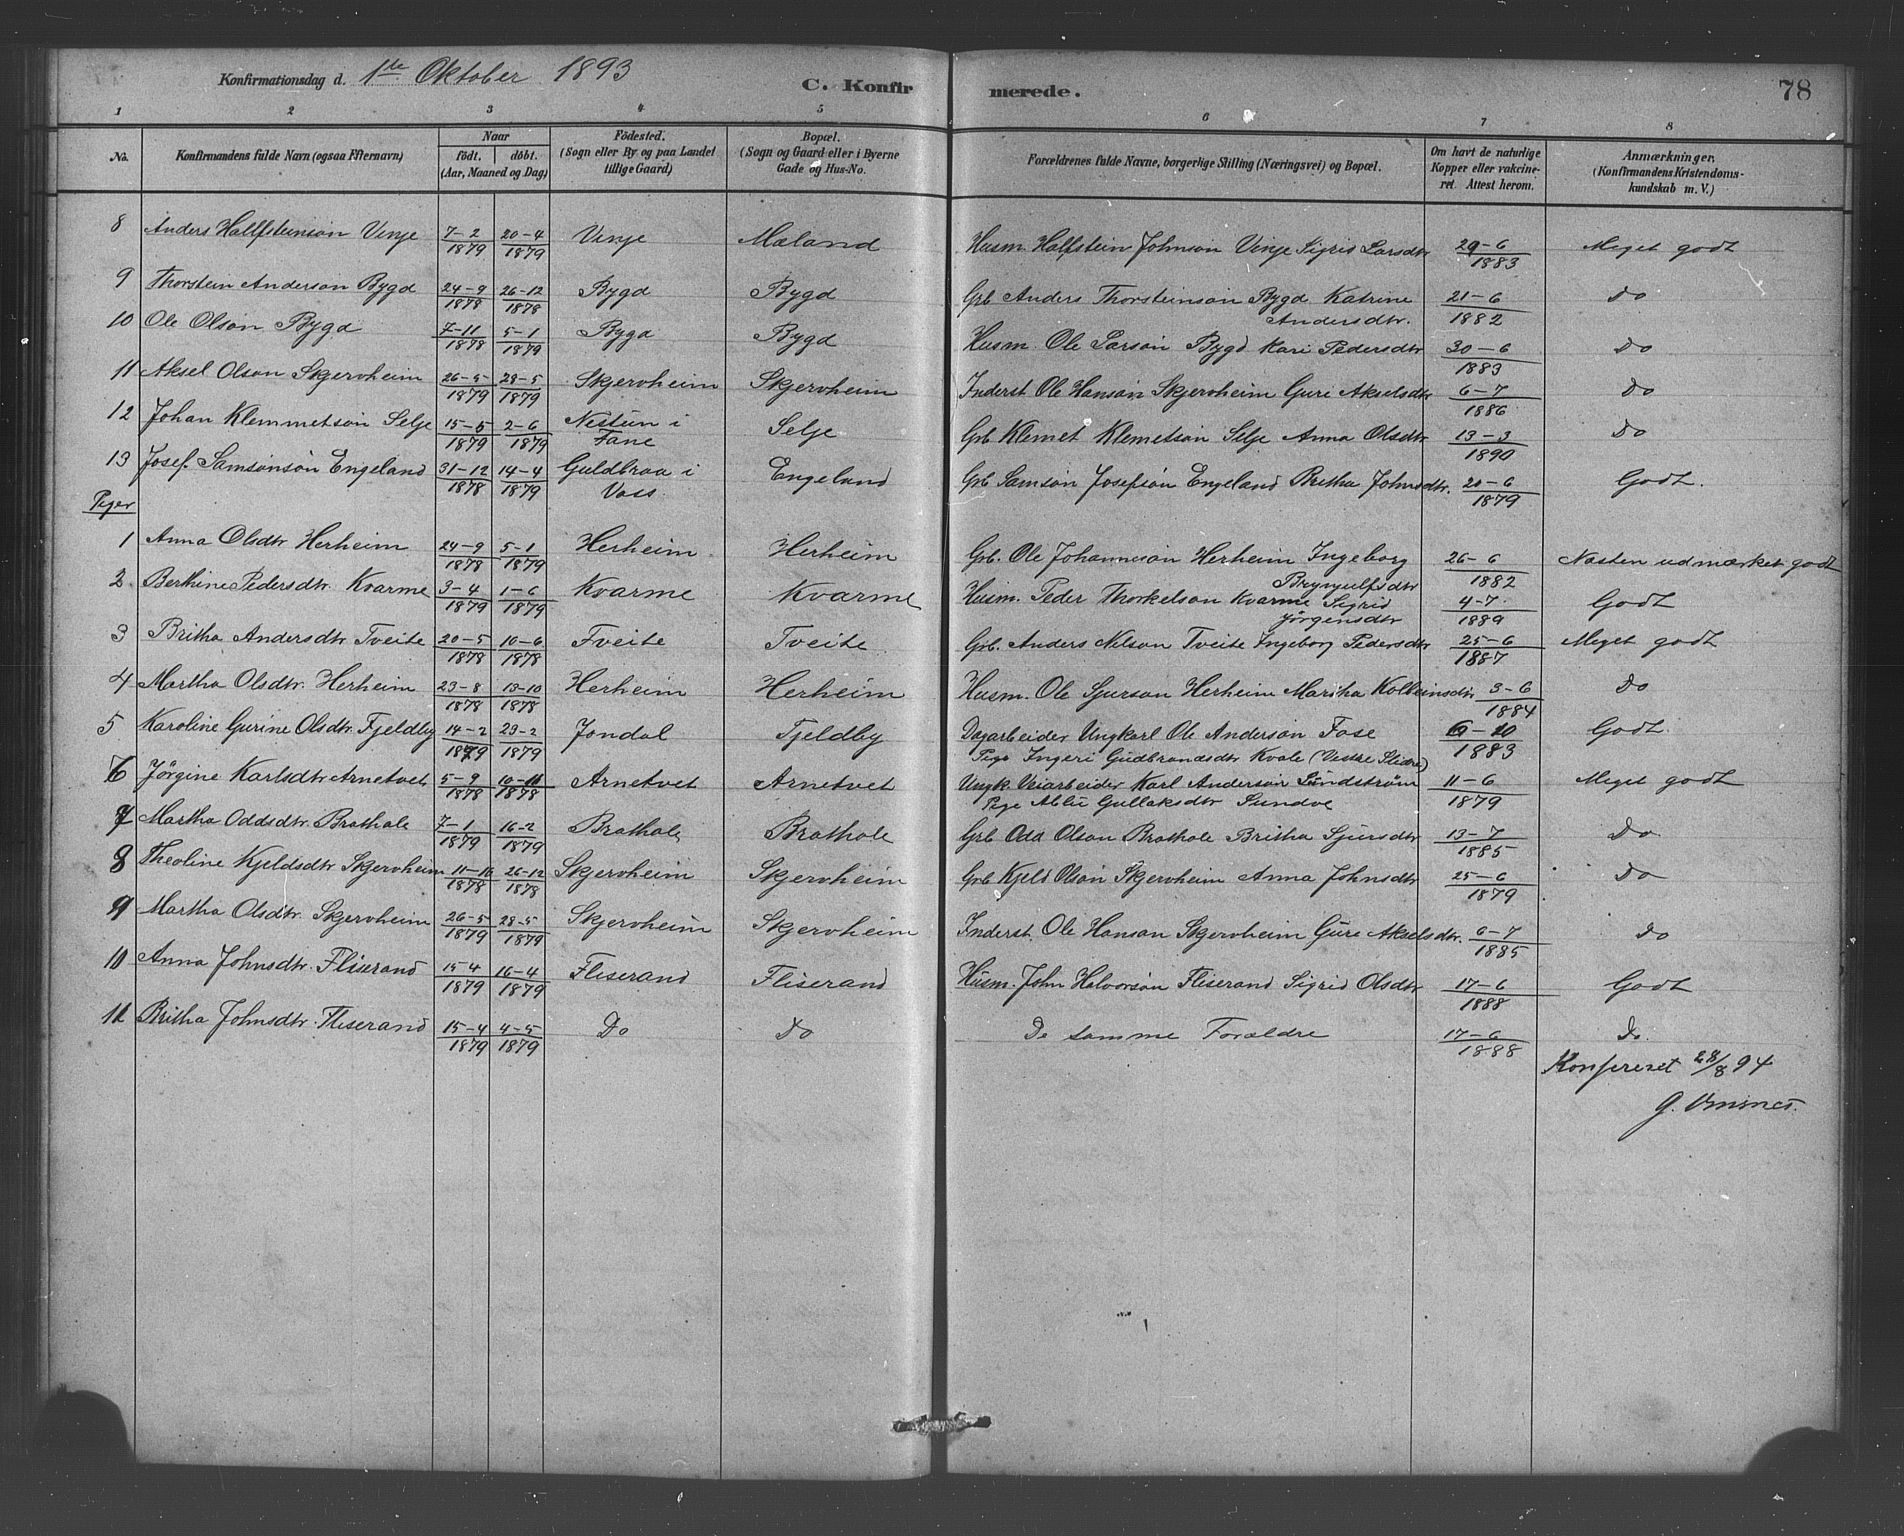 Konfirmationsdag d. 1ste Oktober 1893 C. Konfirmerede. 78
1 2 3 4 5 6 7 8
No. Konfirmandens fulde Navn (ogsaa Efternavn) Naar födt. döbt. (Aar, Maaned og Dag) Födested. (Sogn eller By og paa Landet tillige Gaard) Bopæl. (Sogn og Gaard eller i Byerne Gade og Hus-No. Forældrenes fulde Navne, borgerlige Stilling (Næringsvei) og Bopæl. Om havt de naturlige Kopper eller vakcineret. Attest herom. Anmærkninger. (Konfirmandens Kristendomskundskab m. V.)
8 Anders Hallfsteinsön Vinje 7-2 1879 20-4 1879 Vinje Mæland Husm. Halfstein Johnson Vinje Sigris Larsdtr 29-6 1883 Meget godt
9 Thorstein Anderson Bygd 24-9 1878 26-12 1878 Bygd Bygd Grb Anders Thorsteinsön Bygd Katrine Andersdtr. 21-6 1882 Do
10 Ole Olson Bygd 7-11 1878 5-1 1879 Bygd Bygd Husm. Ole Larsön Bygd Kari Pedersdtr 30-6 1883 Do
11 Aksel Olson Skjervheim 26-5 1879 28-5 1879 Skjervheim Skjervheim Inderst Ole Hanson Skjervheim Guri Akselsdtr 6-7 1886 Do
12 Johan Klemmetsön Selje 15-5 1879 2-6 1879 Nestun i Fane Selje Grb Klemet Klemetsön Selje Anna Olsdtr 13-3 1890 Do
13 Josef Samsönsön Engeland 31-12 1878 14-4 1879 Guldbraa i Voss Engeland Grb Samsön Josefsön Engeland Britha Johnsdtr. 20-6 1879 Godt.
Piger
1 Anna Olsdtr Herheim 24-9 1878 5-1 1879 Herheim Herheim Grb. Ole Johannesön Herheim Ingeborg Brynjulfsdtr 26-6 1882 Næsten udmærket godt
2 Berthine Pedersdtr. Kvarme 3-4 1879 1-6 1879 Kvarme Kvarme Husm. Peder Thorkelson Kvarme Sigrid Jörgensdtr 4-7 1889 Godt
3 Britha Andersdtr Tveite 20-5 1878 10-6 1878 Tveite Tveite Grb. Anders Nelson Tveite Ingeborg Pedersdtr 25-6 1887 Meget godt
4 Martha Olsdtr. Herheim 23-8 1878 13-10 1878 Herheim Herheim Husm. Ole Sjurson Herheim Martha Kolbeinsdtr 3-6 1884 Do
5 Karoline Gurine Olsdtr. Fjeldby 14-2 1879 23-2 1879 Jondal Fjeldby Dagarbeider Ungkarl Ole Anderson Fose Pige Ingeri Gudbrandsdtr Kvale (Vestre Slidre) 6-10 1883 Godt.
6 Jörgine Karlsdtr Arnetvet 5-9 1878 10-11 1878 Arnetvet Arnetvet Ungk. Veiarbeider Karl Anderson Lindström Pige Gullaksdtr Sundve 11-6 1879 Meget godt
7 Martha Oddsdtr. Brathole 7-1 1879 16-2 1879 Brathole Brathole Grb Odd Olson Brathole Britha Sjursdtr 13-7 1885 Do
8 Theoline Kjeldsdtr Skjervheim 11-10 1878 26-12 1878 Skjervheim Skjervheim Grb Kjeld Olsön Skjervheim Anna Johnsdtr 25-6 1879 Do
9 Martha Olsdtr. Skjervheim 26-5 1879 28-5 1879 Skjervheim Skjervheim Inderst. Ole Hanson Skjervheim Guri Akselsdtr. 6-7 1885 Do
10 Anna Johnsdtr. Fliserand 15-4 1879 16-4 1879 Fliserand Fliserand Husm. John Halvorsön Fliserand Sigrid Olsdtr 17-6 1888 Godt
11 Britha Johnsdtr. Fliserand 15-4 1879 4-5 1879 Do Do De samme Forældre 17-6 1888 Do.
Konfereret 28/8 94
G.